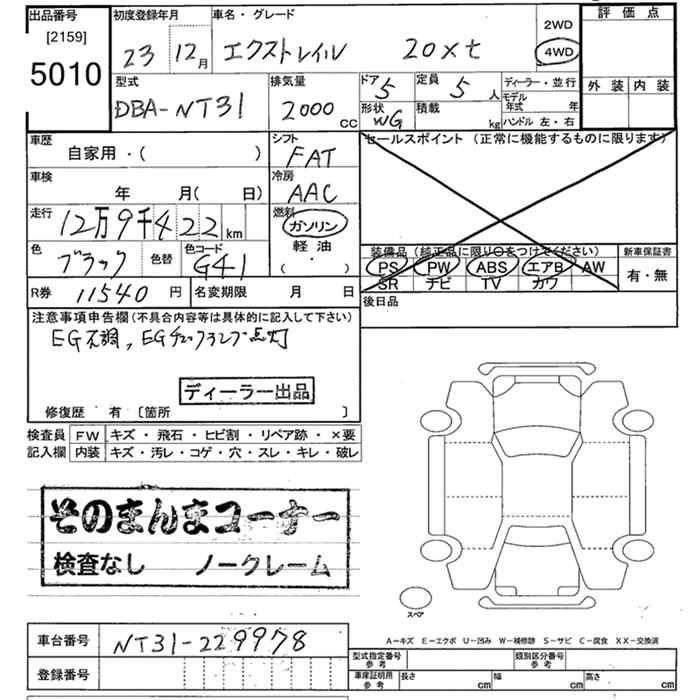 出品番号 初度登録年月 車名・グレード 2WD 評価点
[2159] 23 12月 エクストレイル 20Xt 4WD
5010 型式 排気量 ドア 定員 ディーラー・並行 外装 内装
DBA-NT31 2000CC 5 5人 モデル年式 年
形状 WG 積載 kg ハンドル 左・右
車歴 シフト セールスポイント (正常に機能するものに限ります)
自家用・( ) FAT
車検 冷房
年 月( 日) AAC
走行 燃料
12万9千422km ガソリン
軽油
(・)
色 ブラック 色替 色コード G41
装備品 (純正品に限り○をつけてください) 新車保証書
PS PW ABS エアB AW 有・無
SR ナビ TV カワ
R券 11540円 名変期限 月 日 後日品
注意事項申告欄(不具合内容等は具体的に記入して下さい)
EG不調, EGチェックランプ点灯
ディーラー出品
修復歴 有 [箇所 ]
検査員 FW キズ・飛石・ヒビ割・リペア跡・×要
記入欄 内装 キズ・汚レ・コゲ・穴・スレ・キレ・破レ
そのまんまコーナー
検査なし ノークレーム
スペア
A-キズ E-エクボ U-凹み W-補修跡 S-サビ C-腐食 XX-交換済
車台番号 NT31-229978
登録番号
型式指定番号 参考 類別区分番号 参考
車庫証明用 参考 長さ cm 幅 cm 高さ cm